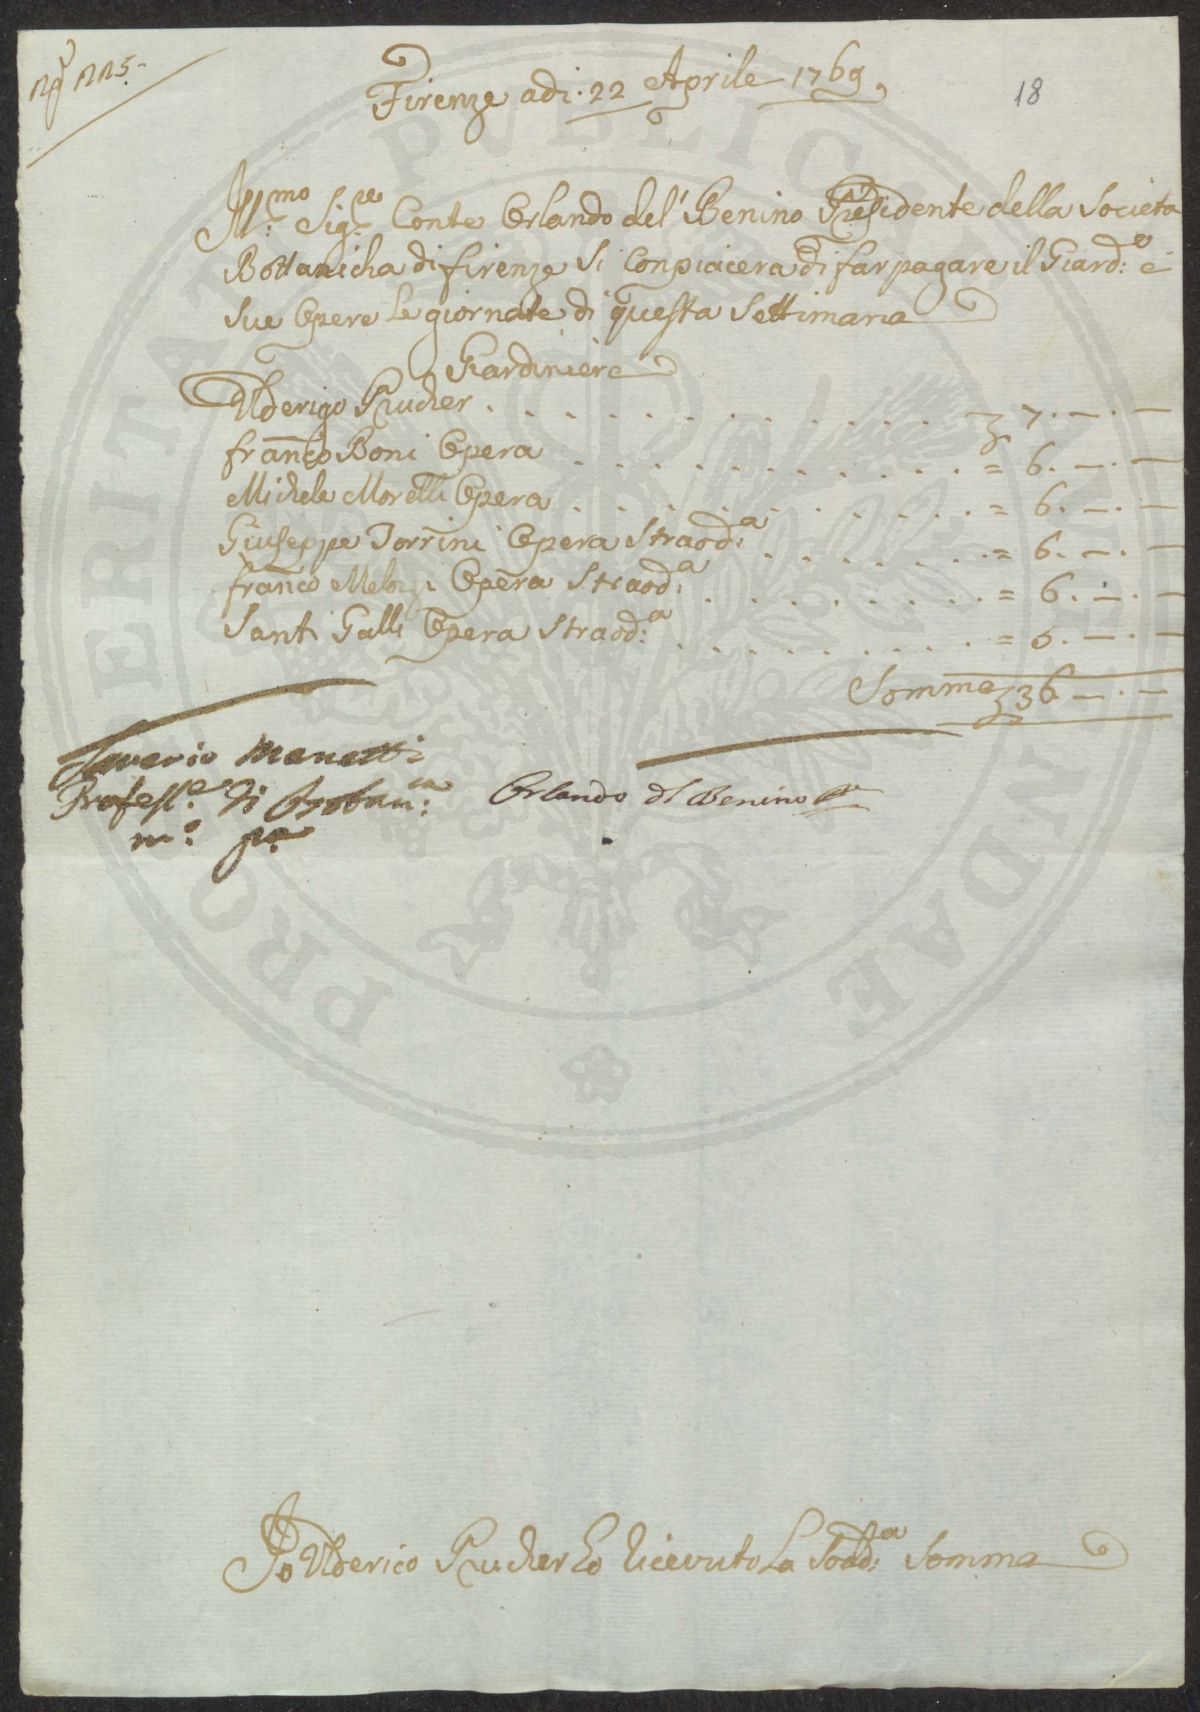 Firenze adi: 22 Aprile 1769
18
Ill:mo Sig:re Conte Orlando del' Benino Presidente della Societa
Bottanicha di firenze Si Conpiacera di far pagare il Giard:e e
Sue Opere Le giornate di questa Settimana
Giardiniere
Ulderigo Prucher . . . . . . . . . . . . 7. —. —
Franco Boni Opera . . . . . . . . . . . = 6. —. —
Michele Morelli Opera . . . . . . . . . . . = 6. —. —
Giuseppe Torrini Opera Straod:a . . . . . . = 6. —. —
franco Opera Straod:a . . . . . . . . = 6. —. —
Santi Galli Opera Straod:a . . . . . . . . . = 6. —. —
Somma 36 —. —
Saverio Manetti
Profess:e di Botan:ca
m:o p:a
Orlando del Benino
Io Ulderico Prucher ho ricevuto La Sodd:a Somma
PROSPERITATI PUBLICAE